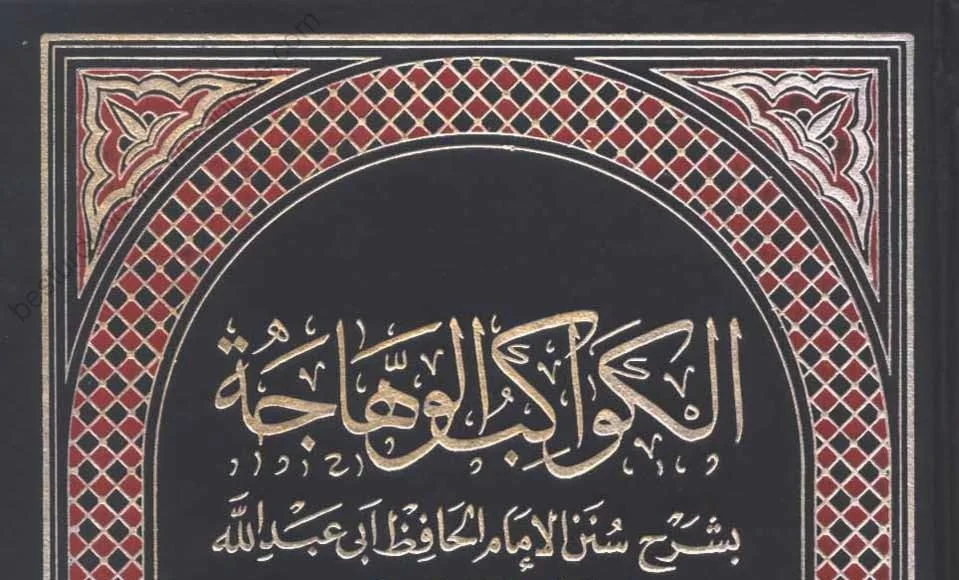 الكَوَاكِبُ الوَهَّاجَة
بِشَرْح سُنَنِ الإِمَامِ الحَافِظِ أَبِي عَبْدِ اللّٰه